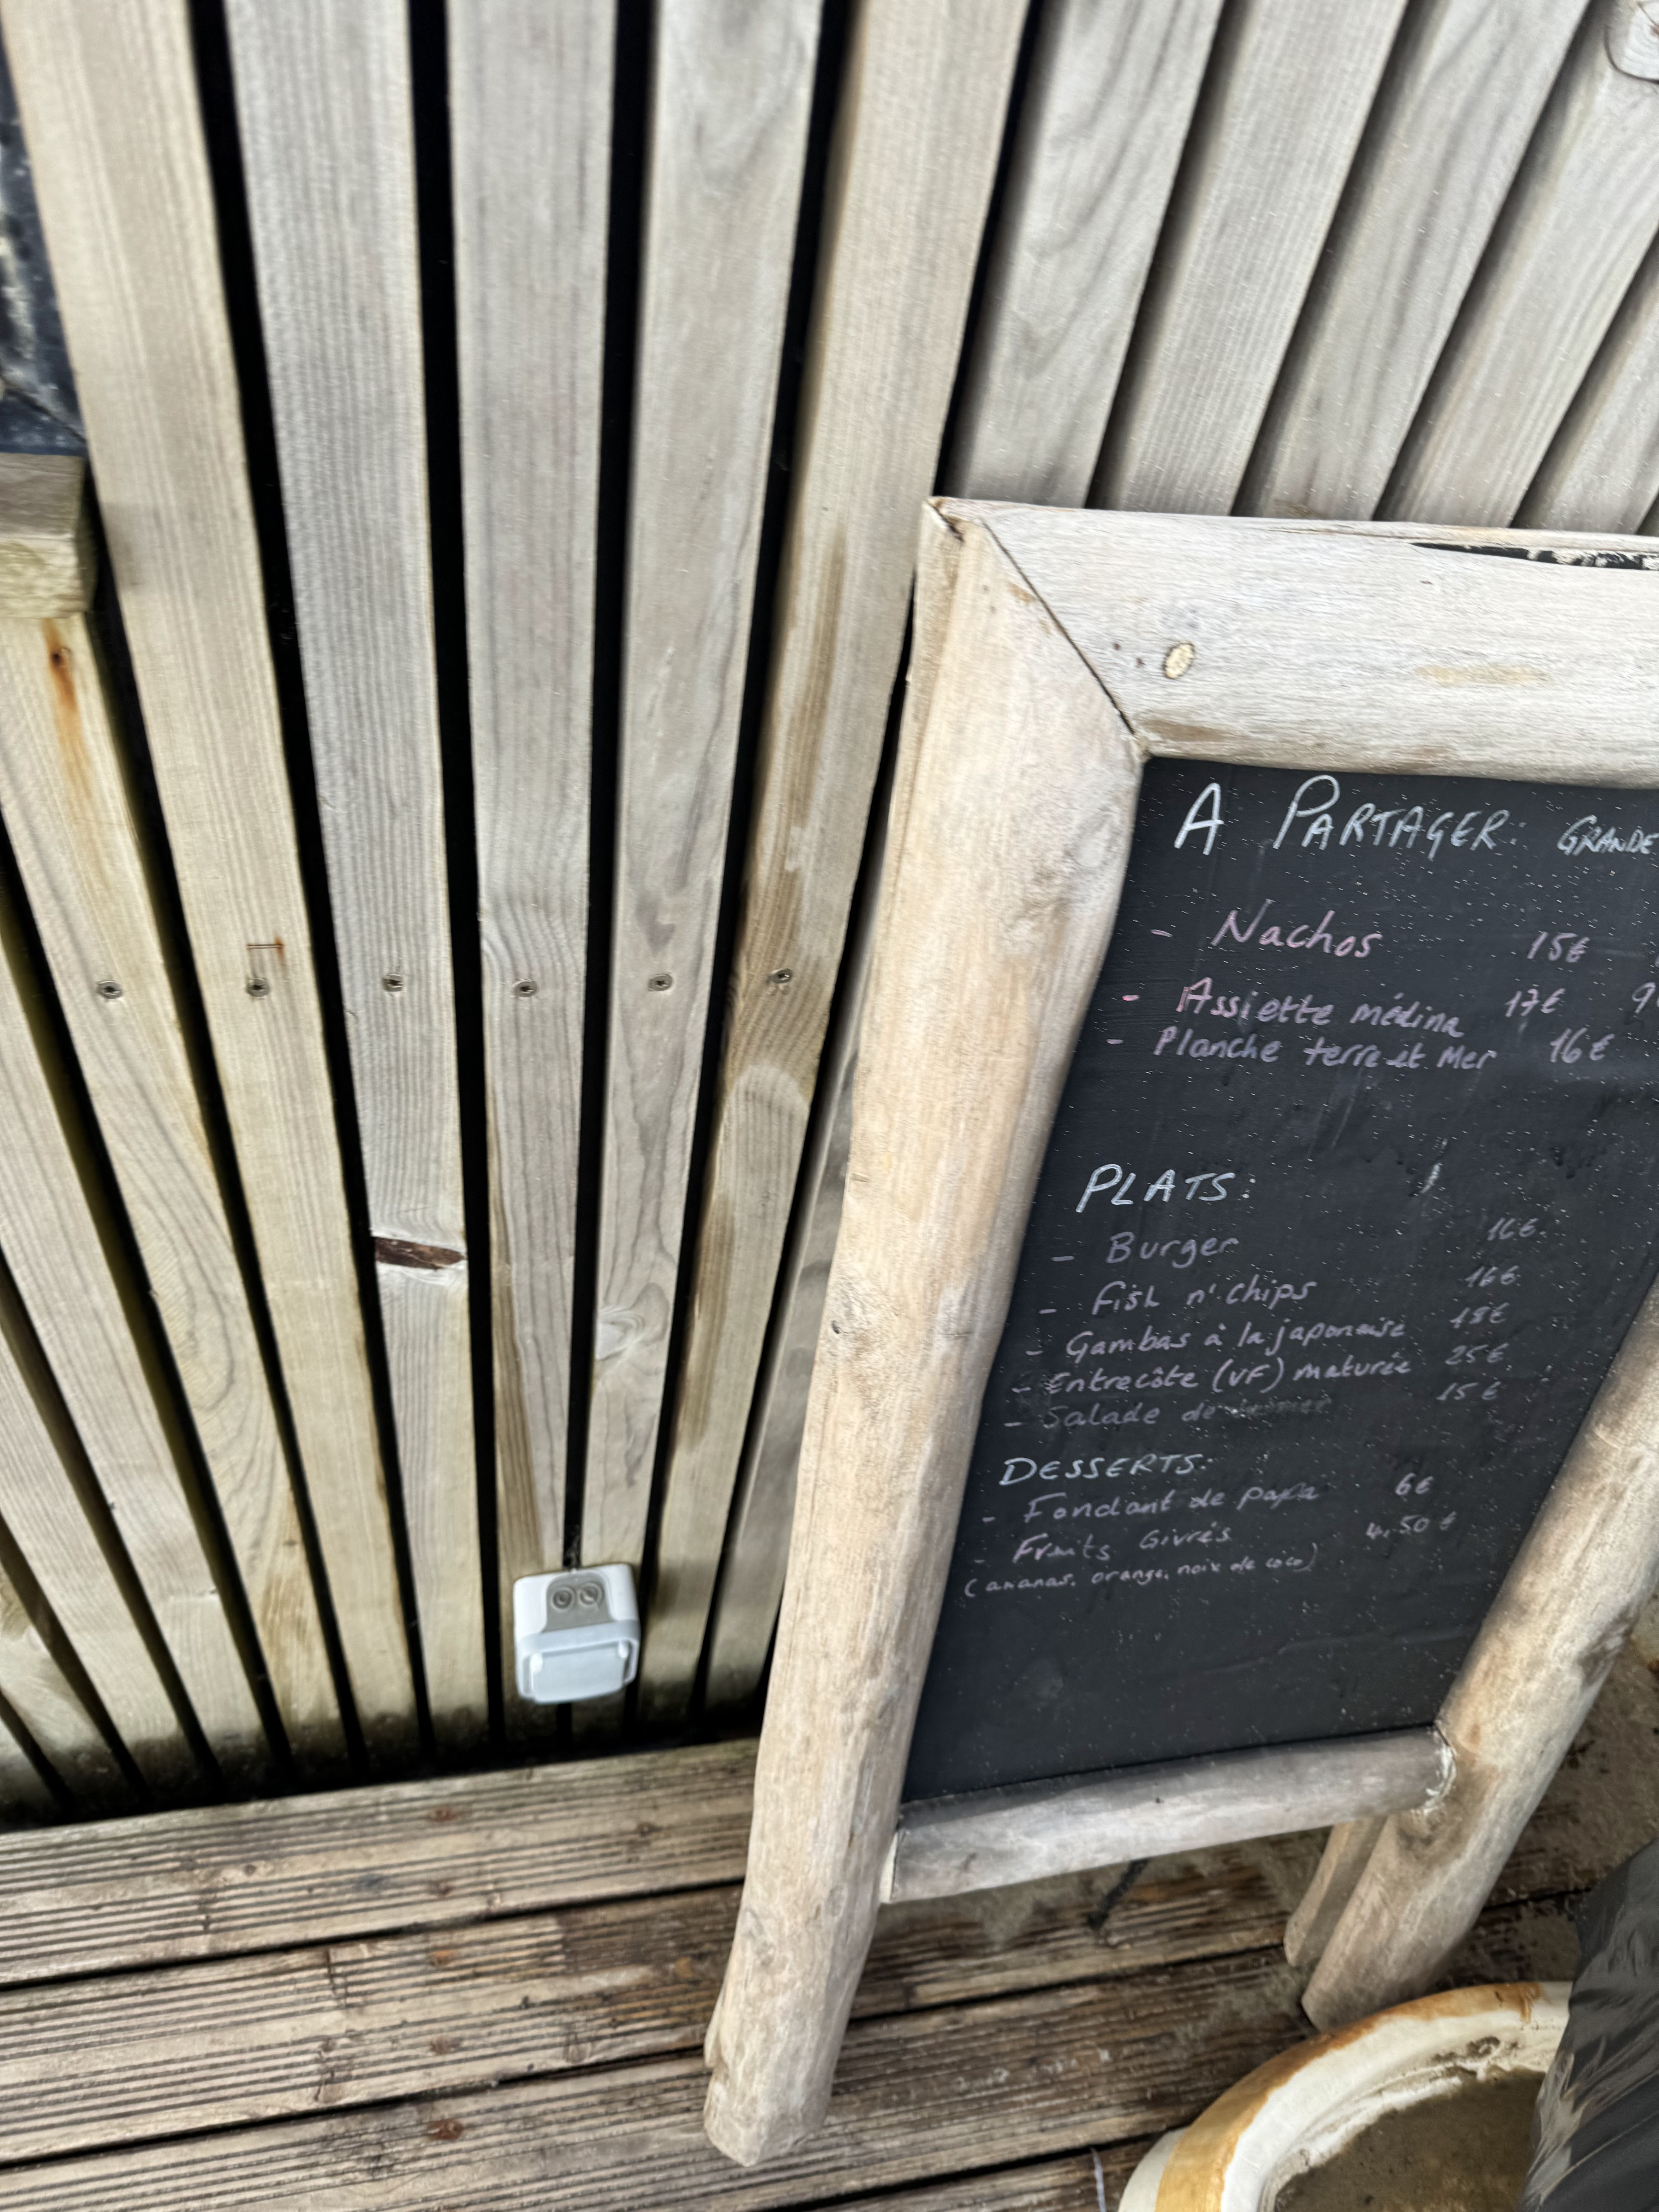 A PARTAGER: GRANDE
- Nachos 15€
- Assiette médina 17€ 9
- Planche terre et Mer 16€
PLATS:
- Burger 16€
- Fish n' chips 16€
- Gambas à la japonaise 18€
- Entrecôte (VF) maturée 25€
- Salade de 15€
DESSERTS:
- Fondant de papa 6€
- Fruits Givrés 4,50€
(ananas, orange, noix de coco)